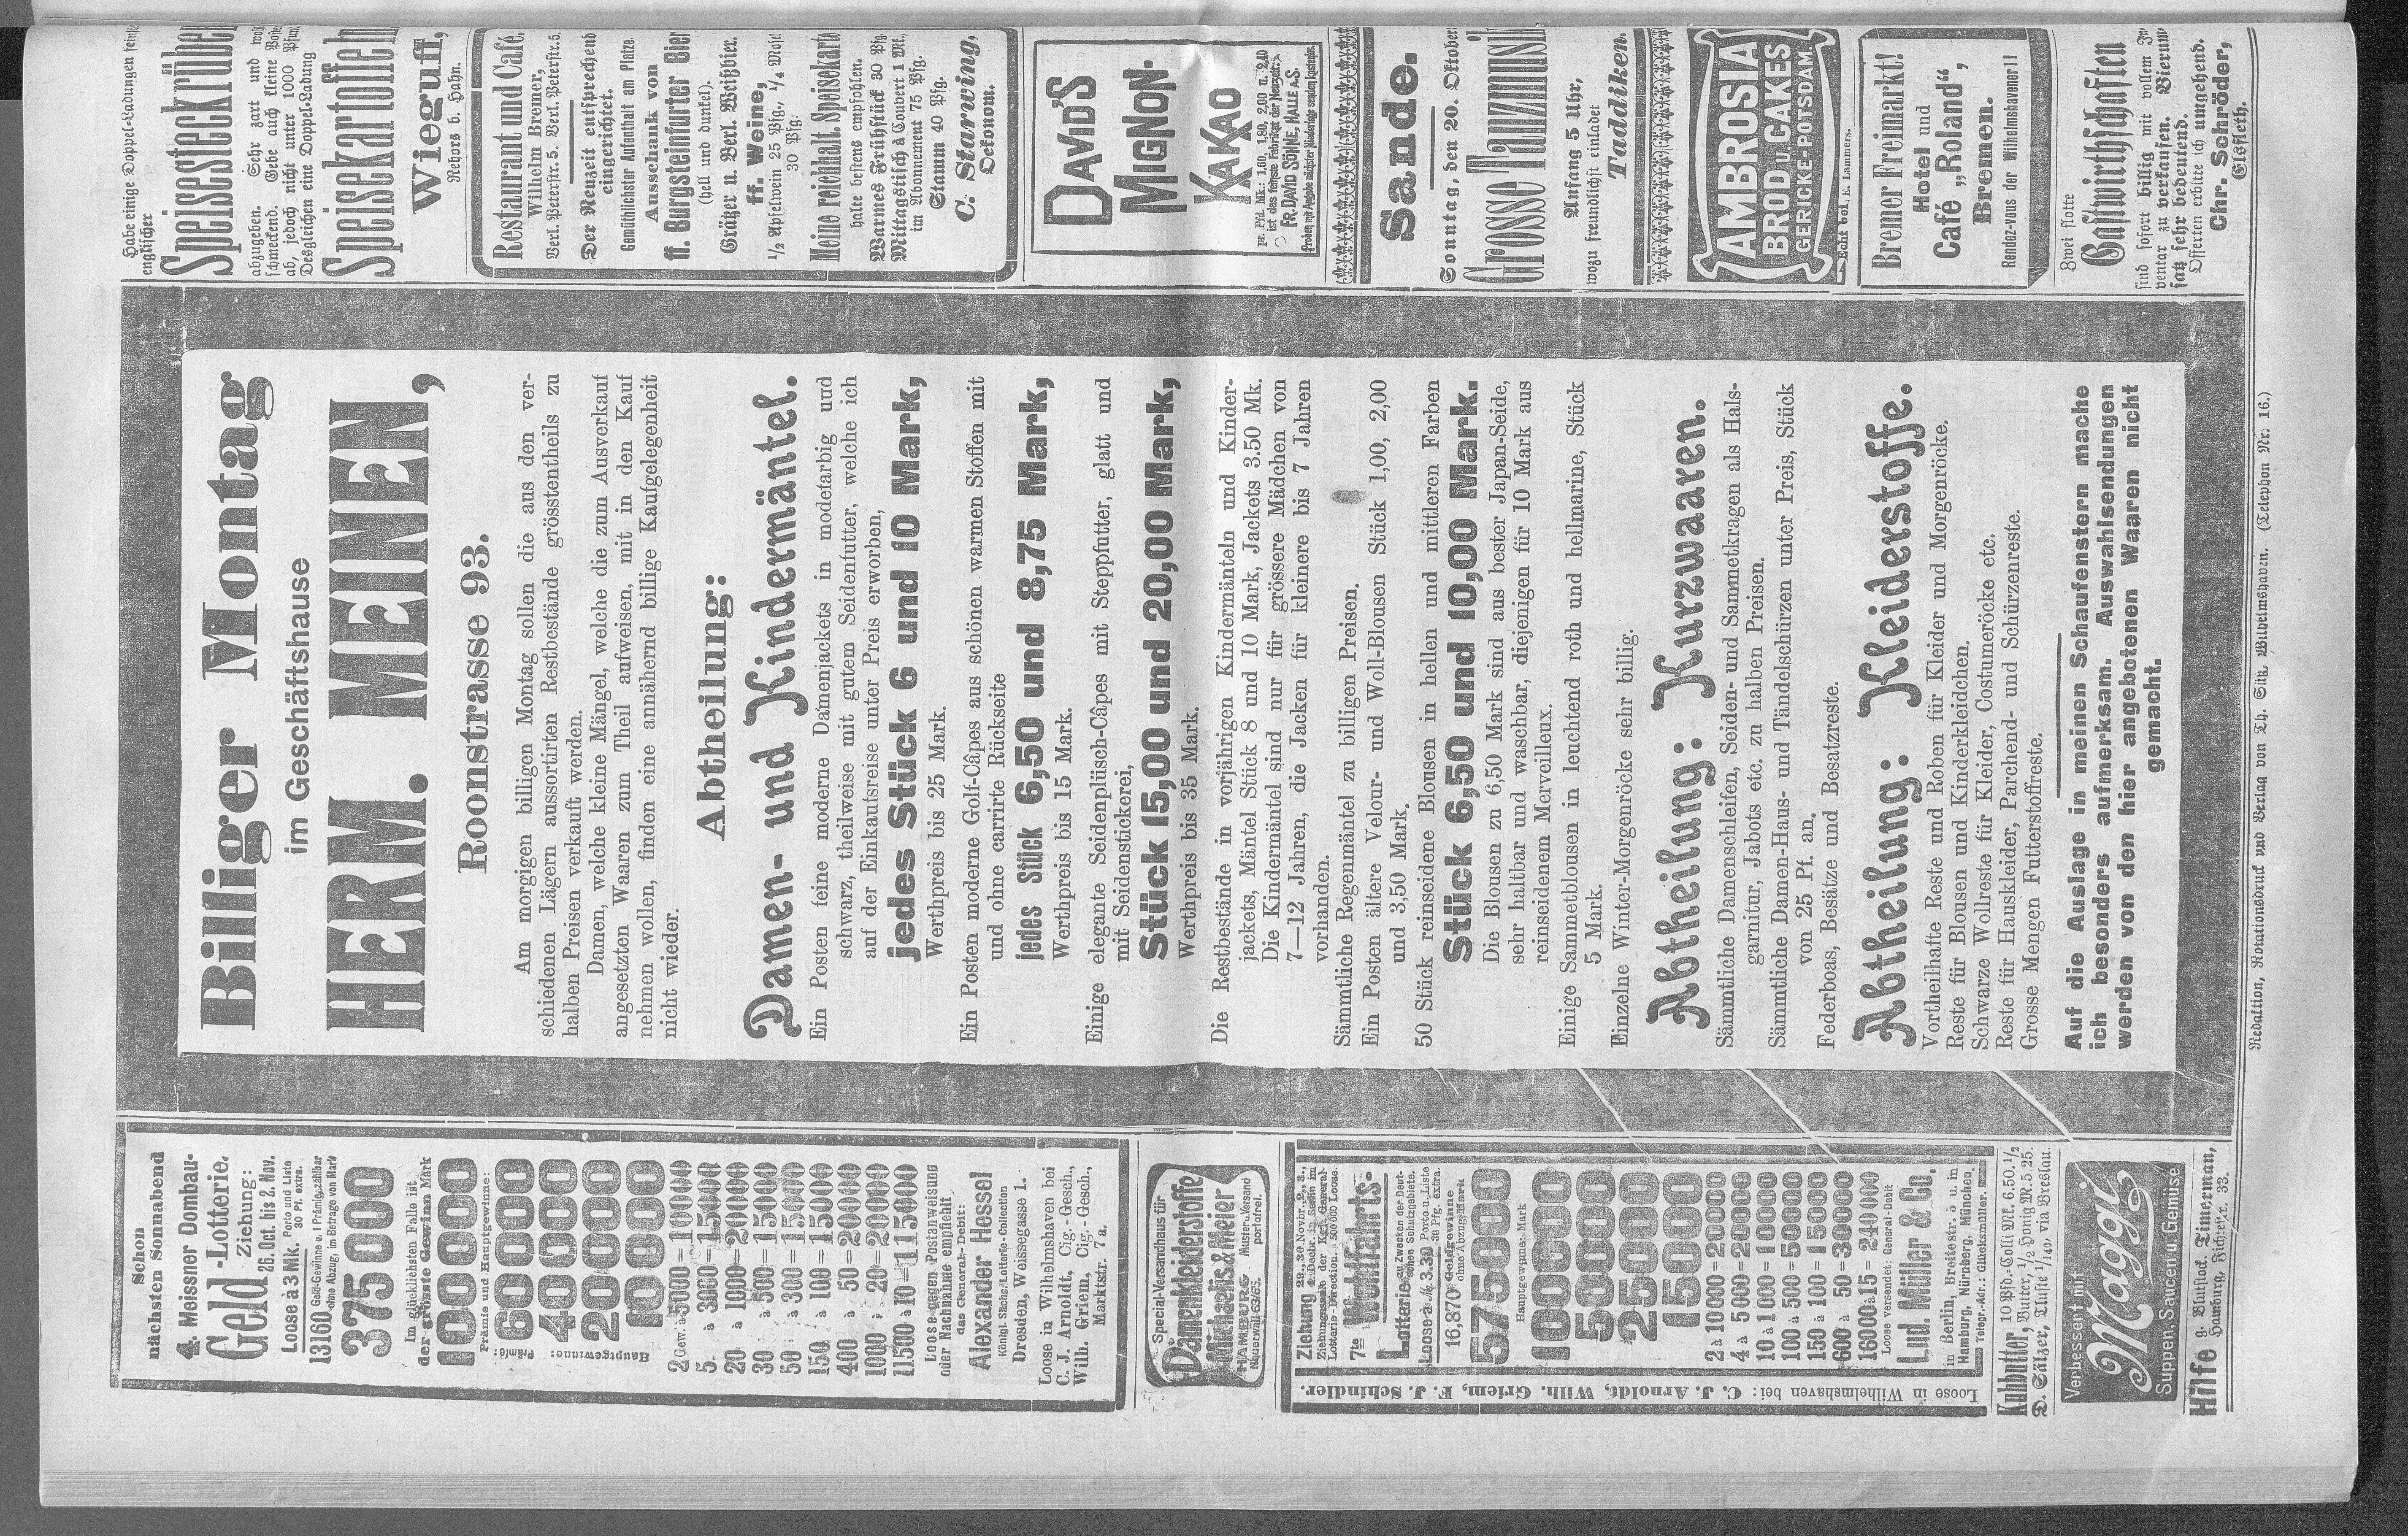 Schon
nächsten Sonnabend
4. Meissner Dombau-
Geld-Lotterie.
Ziehung:
26. Oct. bis 2. Nov.
Loose à 3 Mk. Porto und Liste 30 Pf. extra.
13160 Geld-Gewinne u. 1 Prämie, zahlbar
ohne Abzug, im Betrage von Mark
375000
Im glücklichsten Falle ist
der grösste Gewinn Mark
100000
Prämie und Hauptgewinne:
60000
40000
20000
10000
2 Gew. à 5000 = 10000
5 à 3000 = 15000
20 à 1000 = 20000
30 à 500 = 15000
50 à 300 = 15000
150 à 100 = 15000
400 à 50 = 20000
1000 à 20 = 20000
11500 à 10 = 115000
Loose gegen Postanweisung
oder Nachnahme empfiehlt
das General-Debit:
Alexander Hessel
Königl. Sächs. Lotterie-Collection
Dresden, Weissegasse 1.
Loose in Wilhelmshaven bei
C. J. Arnoldt, Cig.-Gesch.,
Wilh. Griem, Cig.-Gesch.,
Marktstr. 7a.
Special-Versandhaus für
Damenkleiderstoffe
Michaelis & Meier
HAMBURG
Neuerwall 63/65.
Muster-Versand
portofrei.
Ziehung 29., 30 Novbr., 2., 3.,
7te Wohlfahrts-
Lotterie zu Zwecken der Deut-
schen Schutzgebiete.
Loose à M. 3.30 Porto u. Liste
30 Pfg. extra.
16,870 Geldgewinne
ohne Abzug Mark
575000
Hauptgewinne: Mark
100000
50000
25000
15000
2 à 10000 = 20000
4 à 5000 = 20000
10 à 1000 = 10000
100 à 500 = 50000
150 à 100 = 15000
600 à 50 = 30000
16000 à 15 = 240000
Loose versendet: General-Debit
Lud. Müller & Co.
in Berlin, Breitestr. 5 u. in
Hamburg, Nürnberg, München.
Telegr.-Adr.: Glücksmüller.
Loose in Wilhelmshaven bei: C. J. Arnoldt, Wilh. Griem, F. J. Schindler.
Kuhbutter, 10 Pfd.-Colli Mk. 6.50, 1/2
Butter, 1/2 Honig M. 5.25.
D. Sälzer, Tluste 1/140, via Breslau.
Verbessert mit
Maggi
Suppen, Saucen u Gemüse
Hilfe g. Blutstock. Timerman,
Hamburg, Fichtestr. 33.
Billiger Montag
im Geschäftshause
HERM. MEINEN,
Roonstrasse 93.
Am morgigen billigen Montag sollen die aus den ver-
schiedenen Lägern aussortirten Restbestände grösstentheils zu
halben Preisen verkauft werden.
Damen, welche kleine Mängel, welche die zum Ausverkauf
angesetzten Waaren zum Theil aufweisen, mit in den Kauf
nehmen wollen, finden eine annähernd billige Kaufgelegenheit
nicht wieder.
Abtheilung:
Damen- und Kindermäntel.
Ein Posten feine moderne Damenjackets in modefarbig und
schwarz, theilweise mit gutem Seidenfutter, welche ich
auf der Einkaufsreise unter Preis erworben,
jedes Stück 6 und 10 Mark,
Werthpreis bis 25 Mark.
Ein Posten moderne Golf-Câpes aus schönen warmen Stoffen mit
und ohne carrirte Rückseite
jedes Stück 6,50 und 8,75 Mark,
Werthpreis bis 15 Mark.
Einige elegante Seidenplüsch-Câpes mit Steppfutter, glatt und
mit Seidenstickerei,
Stück 15,00 und 20,00 Mark,
Werthpreis bis 35 Mark.
Die Restbestände in vorjährigen Kindermänteln und Kinder-
jackets, Mäntel Stück 8 und 10 Mark, Jackets 3.50 Mk.
Die Kindermäntel sind nur für grössere Mädchen von
7—12 Jahren, die Jacken für kleinere bis 7 Jahren
vorhanden.
Sämmtliche Regenmäntel zu billigen Preisen.
Ein Posten ältere Velour- und Woll-Blousen Stück 1,00, 2,00
und 3,50 Mark.
50 Stück reinseidene Blousen in hellen und mittleren Farben
Stück 6,50 und 10,00 Mark.
Die Blousen zu 6,50 Mark sind aus bester Japan-Seide,
sehr haltbar und waschbar, diejenigen für 10 Mark aus
reinseidenem Merveilleux.
Einige Sammetblousen in leuchtend roth und hellmarine, Stück
5 Mark.
Einzelne Winter-Morgenröcke sehr billig.
Abtheilung: Kurzwaaren.
Sämmtliche Damenschleifen, Seiden- und Sammetkragen als Hals-
garnitur, Jabots etc. zu halben Preisen.
Sämmtliche Damen-Haus- und Tändelschürzen unter Preis, Stück
von 25 Pf. an.
Federboas, Besätze und Besatzreste.
Abtheilung: Kleiderstoffe.
Vortheilhafte Reste und Roben für Kleider und Morgenröcke.
Reste für Blousen und Kinderkleidchen.
Schwarze Wollreste für Kleider, Costumeröcke etc.
Reste für Hauskleider, Parchend- und Schürzenreste.
Grosse Mengen Futterstoffreste.
Auf die Auslage in meinen Schaufenstern mache
ich besonders aufmerksam. Auswahlsendungen
werden von den hier angebotenen Waaren nicht
gemacht.
Habe einige Doppel-Ladungen feinste
englischer
Speisesteckrüben
abzugeben. Sehr zart und wohl-
schmeckend. Gebe auch kleine Posten
ab, jedoch nicht unter 1000 Pfund
Desgleichen eine Doppel-Ladung
Speisekartoffeln
Wieguff,
Rebors b. Hahn.
Restaurant und Café.
Wilhelm Bremer,
Verl. Peterstr. 5. Verl. Peterstr. 5.
Der Neuzeit entsprechend
eingerichtet.
Gemüthlichster Aufenthalt am Platze.
Ausschank von
ff. Burgsteinfurter Bier
(hell und dunkel).
Grätzer u. Berl. Weißbier.
ff. Weine,
1/2 Apfelwein 25 Pfg., 1/4 Mosel
30 Pfg.
Meine reichhalt. Speisekarte
halte bestens empfohlen.
Warmes Frühstück 30 Pfg.
Mittagstisch à Couvert 1 Mk.,
im Abonnement 75 Pfg.
Stamm 40 Pfg.
C. Starwing,
Oekonom.
DAVID'S
MIGNON-
KAKAO
pr. Pfd. Mk.: 1,60, 1,80, 2,00 u. 2,40
ist das feinste Fabrikat der Neuzeit.
FR. DAVID SÖHNE, HALLE a.S.
Proben mit Angabe nächster Niederlage senden kostenlos.
Sande.
Sonntag, den 20. Oktober
Grosse Tanzmusik
Anfang 5 Uhr,
wozu freundlichst einladet
Taddiken.
AMBROSIA
BROD u. CAKES
GERICKE-POTSDAM
Echt bei. E. Lammers.
Bremer Freimarkt!
Hotel und
Café „Roland“,
Bremen.
Rendez-vous der Wilhelmshavener!!
Zwei flotte
Gastwirthschaften
sind sofort billig mit vollem In-
ventar zu verkaufen. Bierum-
satz sehr bedeutend.
Offerten erbitte ich umgehend.
Chr. Schröder,
Elsfleth.
Redaktion, Rotationsdruck und Verlag von Th. Süß, Wilhelmshaven. (Telephon Nr. 16.)